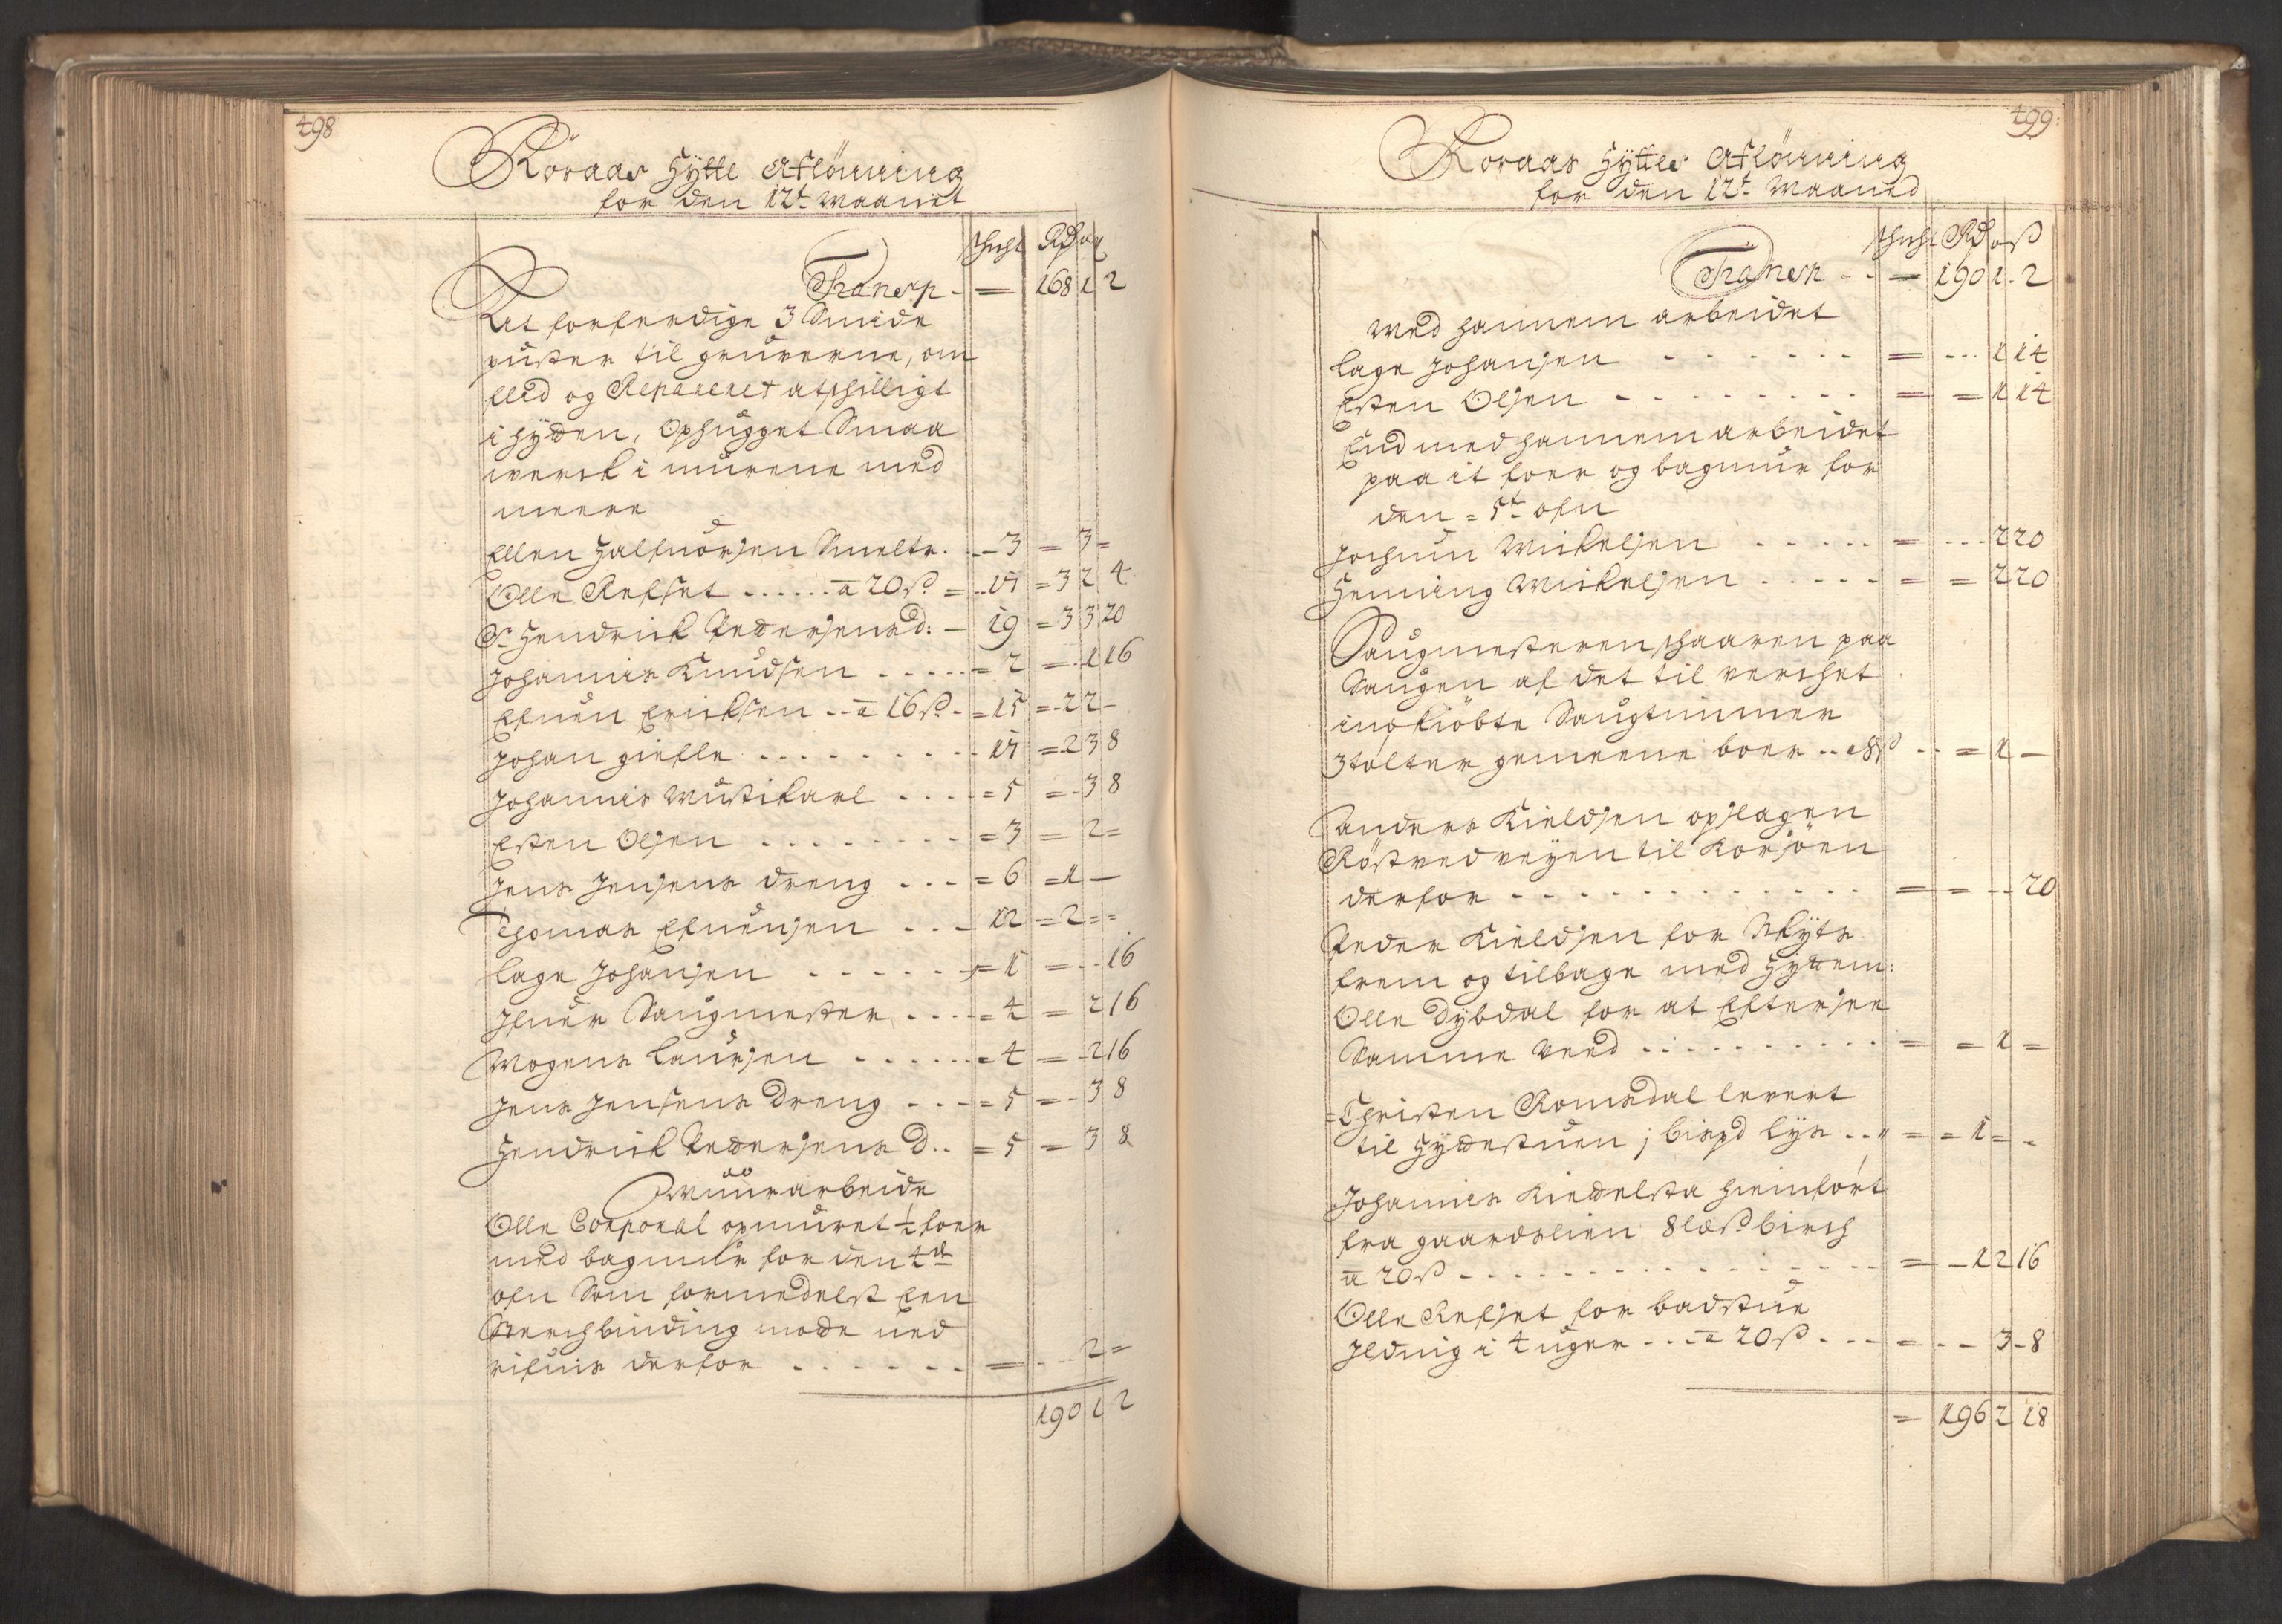 498
Röraas Hytte Aflönning
for den 12t. Maanet
Rd
Transp - = 168 1 2
At forferdige 3 Smide
puster til gruverne, om
lled og Repareret atschilligt
i Hytten, Ophugget Smaa
werck i murene med
meere
Ellen Halfuorsen Smelte. - 3 = 3 =
Olle Refset ...... a 20 ß = - 17 = 3 2 4
Sr. Hendrick Pedersens d: - 19 = 3 3 20
Johannis Knudsen ..... = 2 = - 1 16
Efuen Ericksen .. a 16 ß. = 15 = - 2 2 -
Johan gielle ......... 17 = 2 3 8
Johannis Mustikarl .... = 5 = - 3 8
Esten Olsen ........ = 3 = 2 =
Jens Jensens dreng ... = 6 = 1 -
Thomas Efuensen ... - 12 = 2 = =
Lage Johansen ...... = 1 = - - 16
Ifuer Saugmester .... = 4 = 2 16
Mogens Laursen ...... = 4 = - 2 16
Jens Jensens Dreng ... = 5 = - 3 8
Hendrick Pedersens D.. = 5 = 3 8
Muurarbeide
Olle Corporal opmuret ½ foer
med bagmur for den 4de
ofn Som formedelst Een
Sterchbinding motte ned
rifuis derfor ...... = - - 2 =
190 1 2
499
Roraas Hyttes Aflönning
for den 12t. Maaned
Rd
Transp - - = 190 1. 2
Med hannem arbeidet
Lage Johansen ...... = ... 1 14
Esten Olsen ........ = = 1 14
End med hannem arbeidet
paa it foer og bagmur for
den = 5t. ofn
Jochum Mickelsen ..... = ... 2 20
Henning Mickelsen ..... = = 2 20
Saugmesteren schaaren paa
Saugen af det til verchet
indkiöbte Saugtimmer
3 tolter gemeene boer .. a 8 ß .. = 1 -
Anders Kieldsen opslagen
Röstved veyen til Korsöen
derfor ............ = = - - 20
Peder Kieldsen for Skyts
frem og tilbage med Hyttem:
Olle Dybdal for at Eftersee
Samme Veed .......... = = 1 =
Christen Romsdal levert
til Hyttestuen j bispd lys ... = = 1 = -
Johannis Kiedelsta hiemfört
fra gaardslien 8 læs birch
a 20 ß ............... = - 1 2 16
Olle Refset for badstue
Ildnig i 4 uger ... a 20 ß ... = - - 3 - 8
= 196 2 18